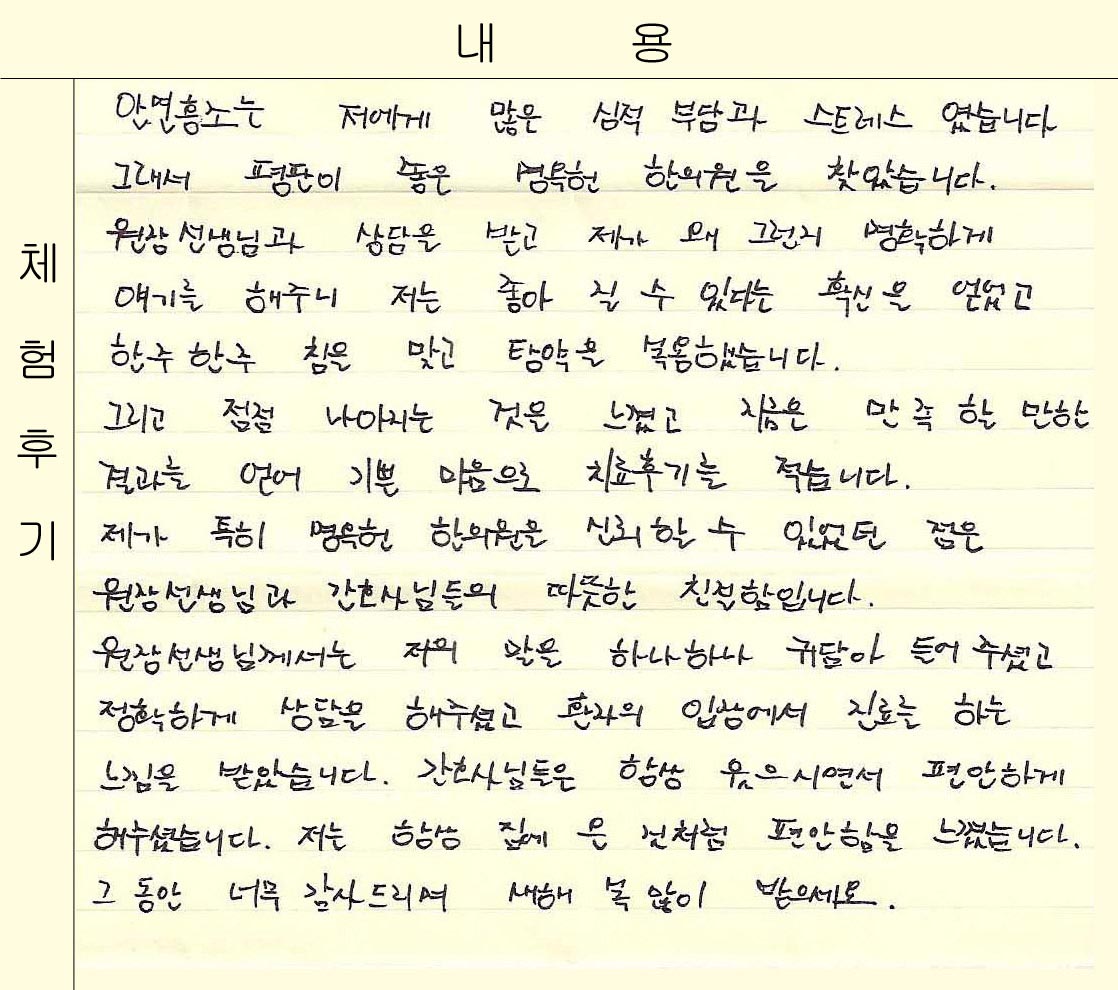 내 용
체험후기
안면홍조는 저에게 많은 심적 부담과 스트레스 였습니다
그래서 평판이 좋은 명옥헌 한의원을 찾았습니다.
원장선생님과 상담을 받고 제가 왜 그런지 명확하게
얘기를 해주니 저는 좋아 질 수 있다는 확신을 얻었고
한주 한주 침을 맞고 탕약을 복용했습니다.
그리고 점점 나아지는 것을 느꼈고 지금은 만족 할 만한
결과를 얻어 기쁜 마음으로 치료후기를 적습니다.
제가 특히 명옥헌 한의원을 신뢰 할 수 있었던 점은
원장선생님과 간호사님들의 따뜻한 친절함입니다.
원장선생님께서는 저의 말을 하나하나 귀담아 들어 주셨고
정확하게 상담을 해주셨고 환자의 입장에서 진료를 하는
느낌을 받았습니다. 간호사님들은 항상 웃으시면서 편안하게
해주셨습니다. 저는 항상 집에 온 것처럼 편안함을 느꼈습니다.
그 동안 너무 감사드리며 새해 복 많이 받으세요.